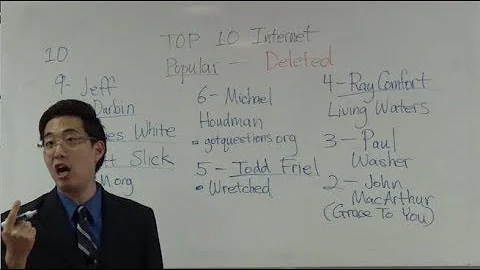 TOP 10 Internet
Popular - Deleted
10
9- Jeff
Durbin
es White
t Slick
org
6 - Michael
Houdman
• gotquestions.org
5 - Todd Friel
• Wretched
4 - Ray Comfort
Living Waters
3 - Paul
Washer
2 - John
MacArthur
(Grace To You)